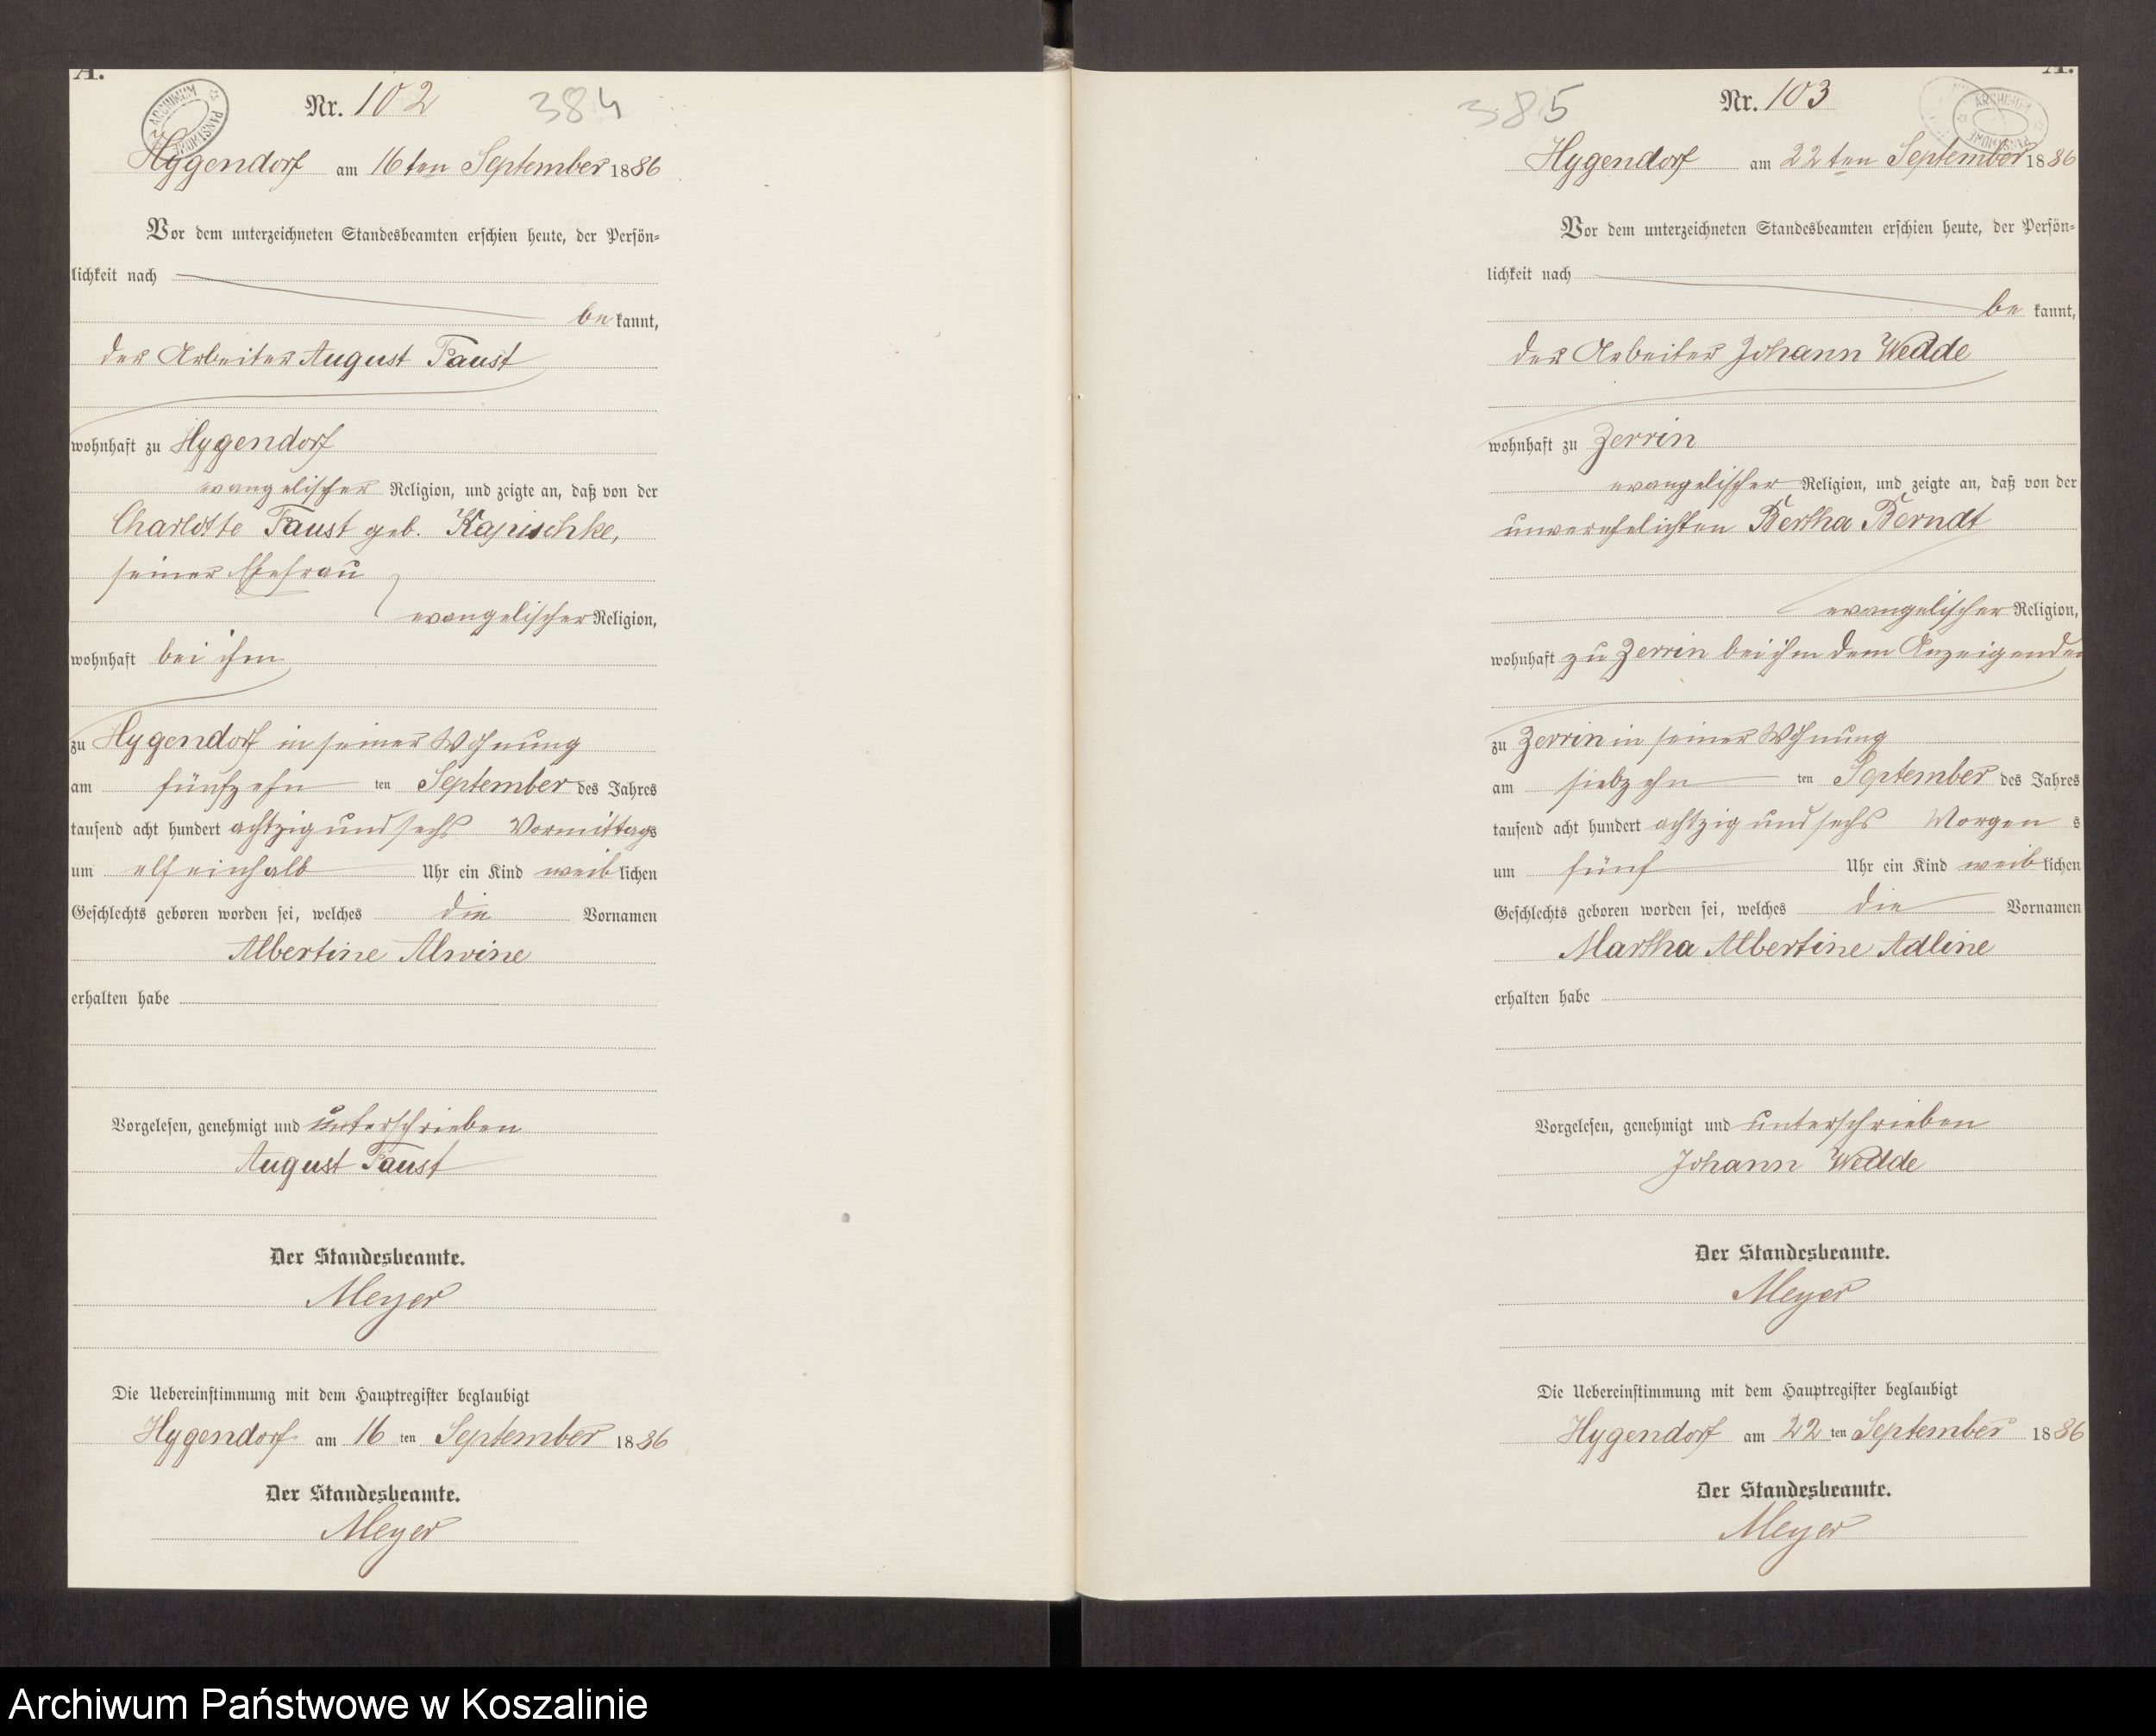 A.
ARCHIWUM PAŃSTWOWE
Nr. 102
384
Hygendorf am 16ten September 1886
Vor dem unterzeichneten Standesbeamten erschien heute, der Persön-
lichkeit nach
be kannt,
der Arbeiter August Faust
wohnhaft zu Hygendorf
evangelischer Religion, und zeigte an, daß von der
Charlotte Faust geb.
seiner Ehefrau
evangelischer Religion,
wohnhaft bei ihm
zu Hygendorf in seiner Wohnung
am fünfzehn ten September des Jahres
tausend acht hundert achtzig und sechs Vormittags
um elf einhalb Uhr ein Kind weiblichen
Geschlechts geboren worden sei, welches die Vornamen
Albertine Alwine
erhalten habe
Vorgelesen, genehmigt und unterschrieben
August Faust
Der Standesbeamte.
Meyer
Die Uebereinstimmung mit dem Hauptregister beglaubigt
Hygendorf am 16 ten September 1886
Der Standesbeamte.
Meyer
A.
385
Nr. 103
ARCHIWUM PAŃSTWOWE
Hygendorf am 22ten September 1886
Vor dem unterzeichneten Standesbeamten erschien heute, der Persön-
lichkeit nach
be kannt,
der Arbeiter Johann Wedde
wohnhaft zu Zerrin
evangelischer Religion, und zeigte an, daß von der
unverehelichten Bertha Berndt
evangelischer Religion,
wohnhaft zu Zerrin bei ihm dem Anzeigenden
zu Zerrin in seiner Wohnung
am siebzehn ten September des Jahres
tausend acht hundert achtzig und sechs Morgen s
um fünf Uhr ein Kind weiblichen
Geschlechts geboren worden sei, welches die Vornamen
Martha Albertine Adline
erhalten habe
Vorgelesen, genehmigt und unterschrieben
Johann Wedde
Der Standesbeamte.
Meyer
Die Uebereinstimmung mit dem Hauptregister beglaubigt
Hygendorf am 22 ten September 1886
Der Standesbeamte.
Meyer
Archiwum Państwowe w Koszalinie